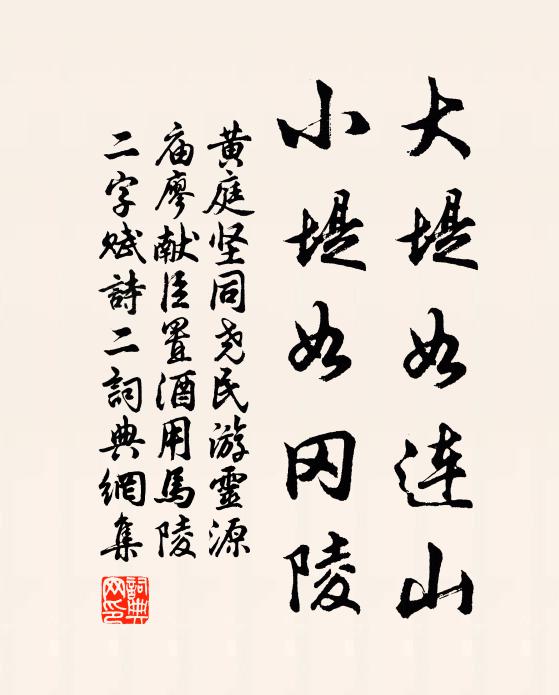 大堤如连山
小堤如冈陵
黄庭坚同尧民游靈源
庙廖献臣置酒用馬陵
二字赋詩二詞典網集
詞典網印